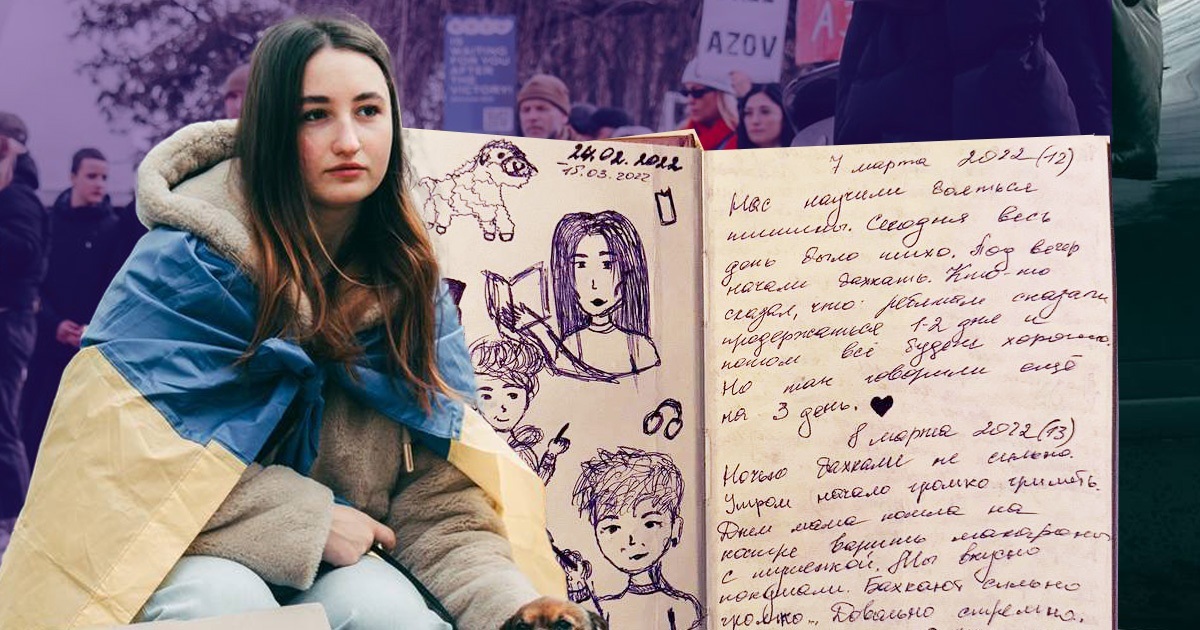 WAITING
FOR YOU
AFTER
VICTORY!
AZOV
24.02.2022
15.03.2022
7 марта 2022 (12)
Нас научили бояться
тишины. Сегодня весь
день было тихо. Под вечер
начали бахкать. Кто-то
сказал, что ребятам сказали
продержаться 1-2 дня и
потом всё будет хорошо.
Но так говорили ещё
на 3 день.
8 марта 2022 (13)
Ночью бахкали не сильно.
Утром начало громко греметь.
Днем мама пошла на
костре варить макароны
с тушенкой. Мы вкусно
покушали. Бахкают сильно
громко.. Довольно стремно.